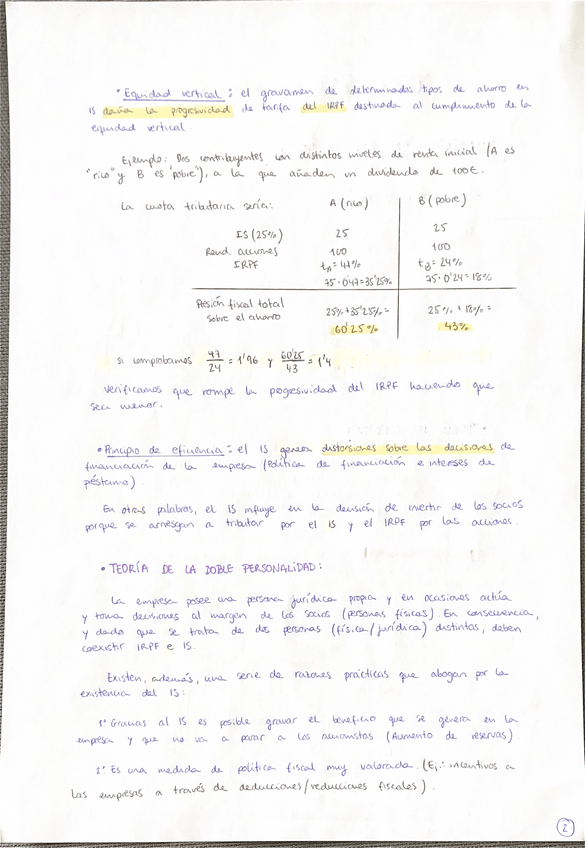 • Equidad vertical: el gravamen de determinados tipos de ahorro en
IS daña la progresividad de tarifa del IRPF destinada al cumplimiento de la
equidad vertical.
Ejemplo: Dos contribuyentes con distintos niveles de renta inicial (A es
"rico" y B es "pobre"), a la que añaden un dividendo de 100€.
La cuota tributaria sería: A (rico) B (pobre)
IS (25%) 25 25
Rend. acciones 100 100
IRPF tA = 47% tB = 24%
75 · 0'47 = 35'25% 75 · 0'24 = 18%
Presión fiscal total 25% + 35'25% = 25% + 18% =
sobre el ahorro 60'25% 43%
Si comprobamos 47/24 = 1'96 y 60'25/43 = 1'4
Verificamos que rompe la progresividad del IRPF haciendo que
sea menor.
• Principio de eficiencia: el IS genera distorsiones sobre las decisiones de
financiación de la empresa (Política de financiación e intereses de
préstamo).
En otras palabras, el IS influye en la decisión de invertir de los socios
porque se arriesgan a tributar por el IS y el IRPF por las acciones.
• TEORÍA DE LA DOBLE PERSONALIDAD:
La empresa posee una persona jurídica propia y en ocasiones actúa
y toma decisiones al margen de los socios (personas físicas). En consecuencia,
y dado que se trata de dos personas (física/jurídica) distintas, deben
coexistir IRPF e IS.
Existen, además, una serie de razones prácticas que abogan por la
existencia del IS:
1º Gracias al IS es posible gravar el beneficio que se genera en la
empresa y que no va a parar a los accionistas (Aumento de reservas).
2º Es una medida de política fiscal muy valorada. (Ej.: incentivos a
las empresas a través de deducciones/reducciones fiscales).
2